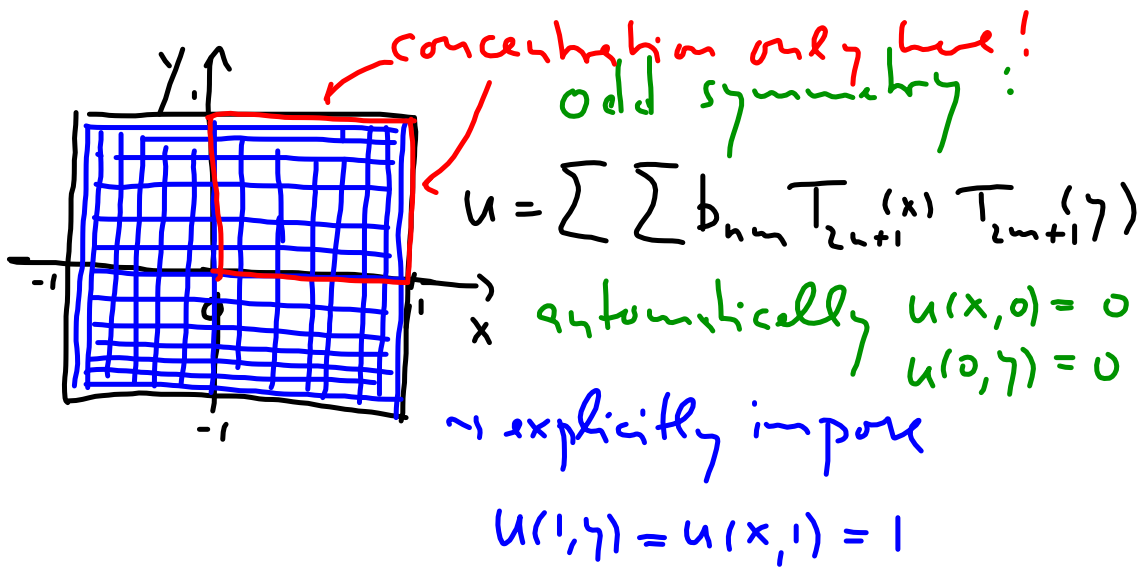 concentration only here!
odd symmetry:
y
1
u = ∑ ∑ b_{nm} T_{2n+1}(x) T_{2m+1}(y)
-1
0
1
x
automatically u(x,0) = 0
u(0,y) = 0
-1
⇝ explicitly impose
u(1,y) = u(x,1) = 1